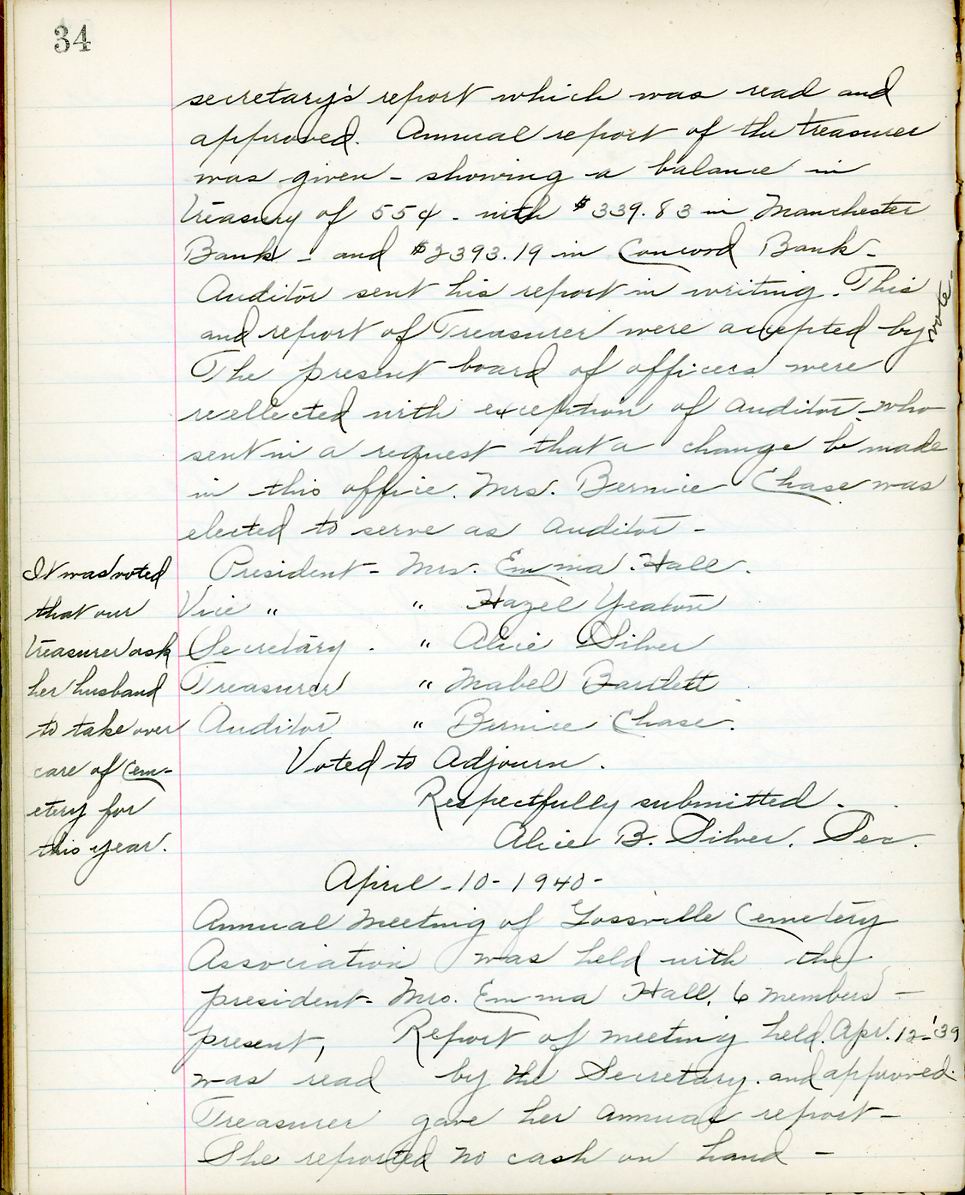 34
secretary's report which was read and
approved. Annual report of the treasurer
was given - showing a balance in
treasury of 55¢ - with $339.83 in Manchester
Bank - and $2393.19 in Concord Bank -
Auditor sent his report in writing. This
and report of Treasurer were accepted by vote -
The present board of officers were
reellected with exception of Auditor - who
sent in a request that a change be made
in this office. Mrs. Bernice Chase was
elected to serve as auditor -
President - Mrs. Emma Hall.
Vice " " Hazel Yeaton
Secretary - " Alice Silver
Treasurer " Mabel Bartlett
Auditor " Bernice Chase.
Voted to Adjourn.
Respectfully submitted.
Alice B. Silver. Sec.
It was voted
that our
treasurer ask
her husband
to take over
care of Cem-
etery for
this year.
April - 10 - 1940 -
Annual Meeting of Gossville Cemetery
Association was held with the
president - Mrs. Emma Hall. 6 members -
present, Report of meeting held Apr. 12 - '39
was read by the Secretary. and approved.
Treasurer gave her annual report -
She reported no cash on hand -